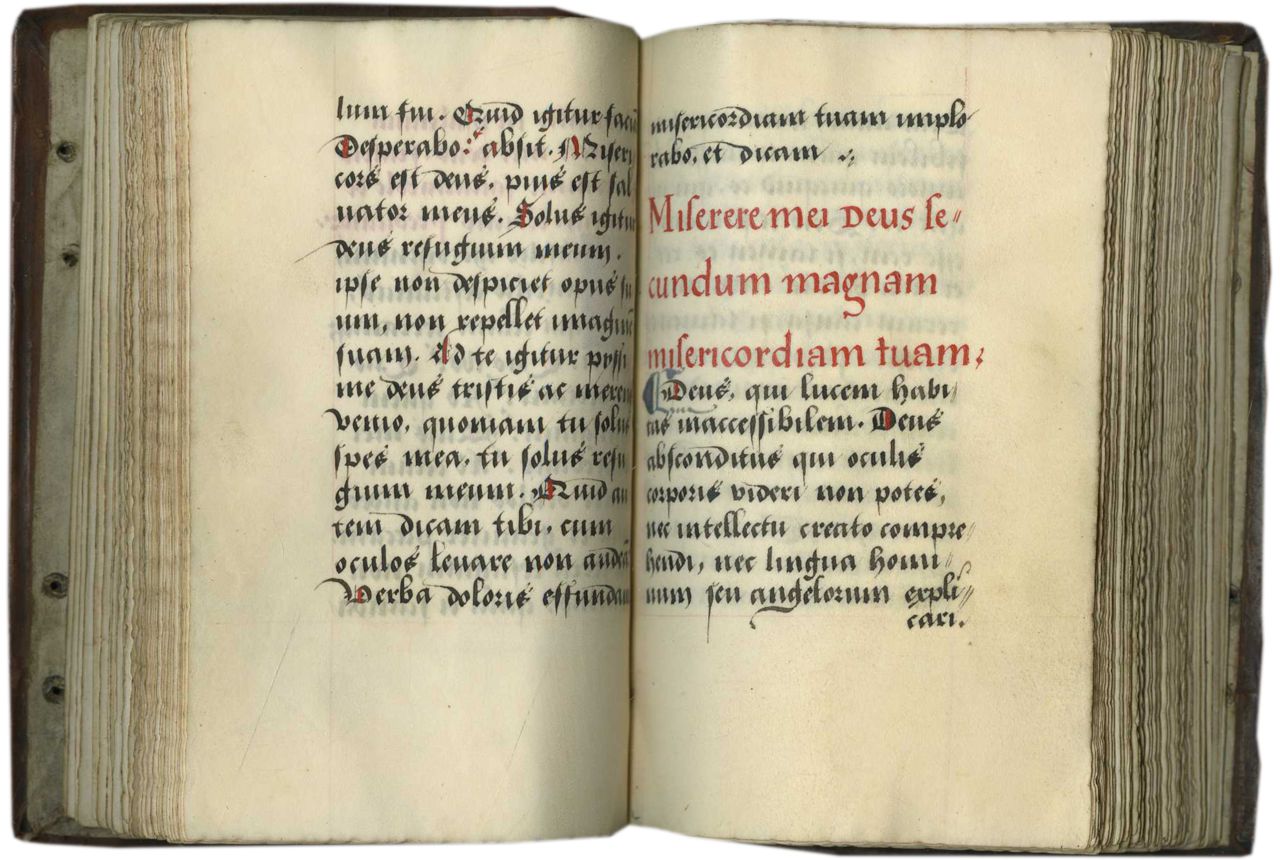 lum fui. Quid igitur faciã
Desperabo? absit. Miseri
cors est deus, pius est sal
uator meus. Solus igitur
deus refugium meum.
ipse non despiciet opus su
um, non repellet imaginẽ
suam. Ad te igitur pyssi
me deus tristis ac merens
venio, quoniam tu solus
spes mea, tu solus refu
gium meum. Quid au
tem dicam tibi, cum
oculos leuare non audeã
Verba doloris effundam
misericordiam tuam implo
rabo, et dicam
Miserere mei Deus se"
cundum magnam
misericordiam tuam;
Deus, qui lucem habi/
tas inaccessibilem. Deus
absconditus qui oculis
corporis videri non potes,
nec intellectu creato compre"
hendi, nec lingua homi"
num seu angelorum expli"
cari.